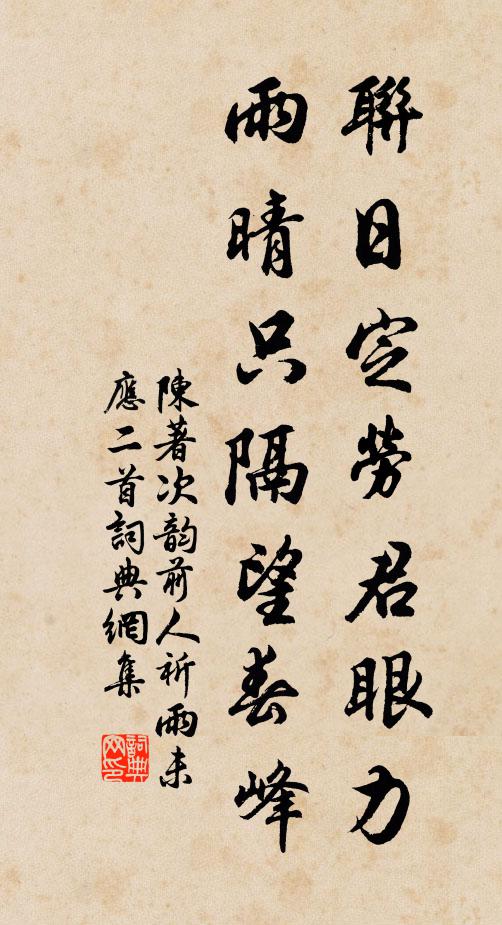 聯日定勞君眼力
雨晴只隔望春峰
陳著次韵前人祈雨未
應二首詞典網集
詞典
网印